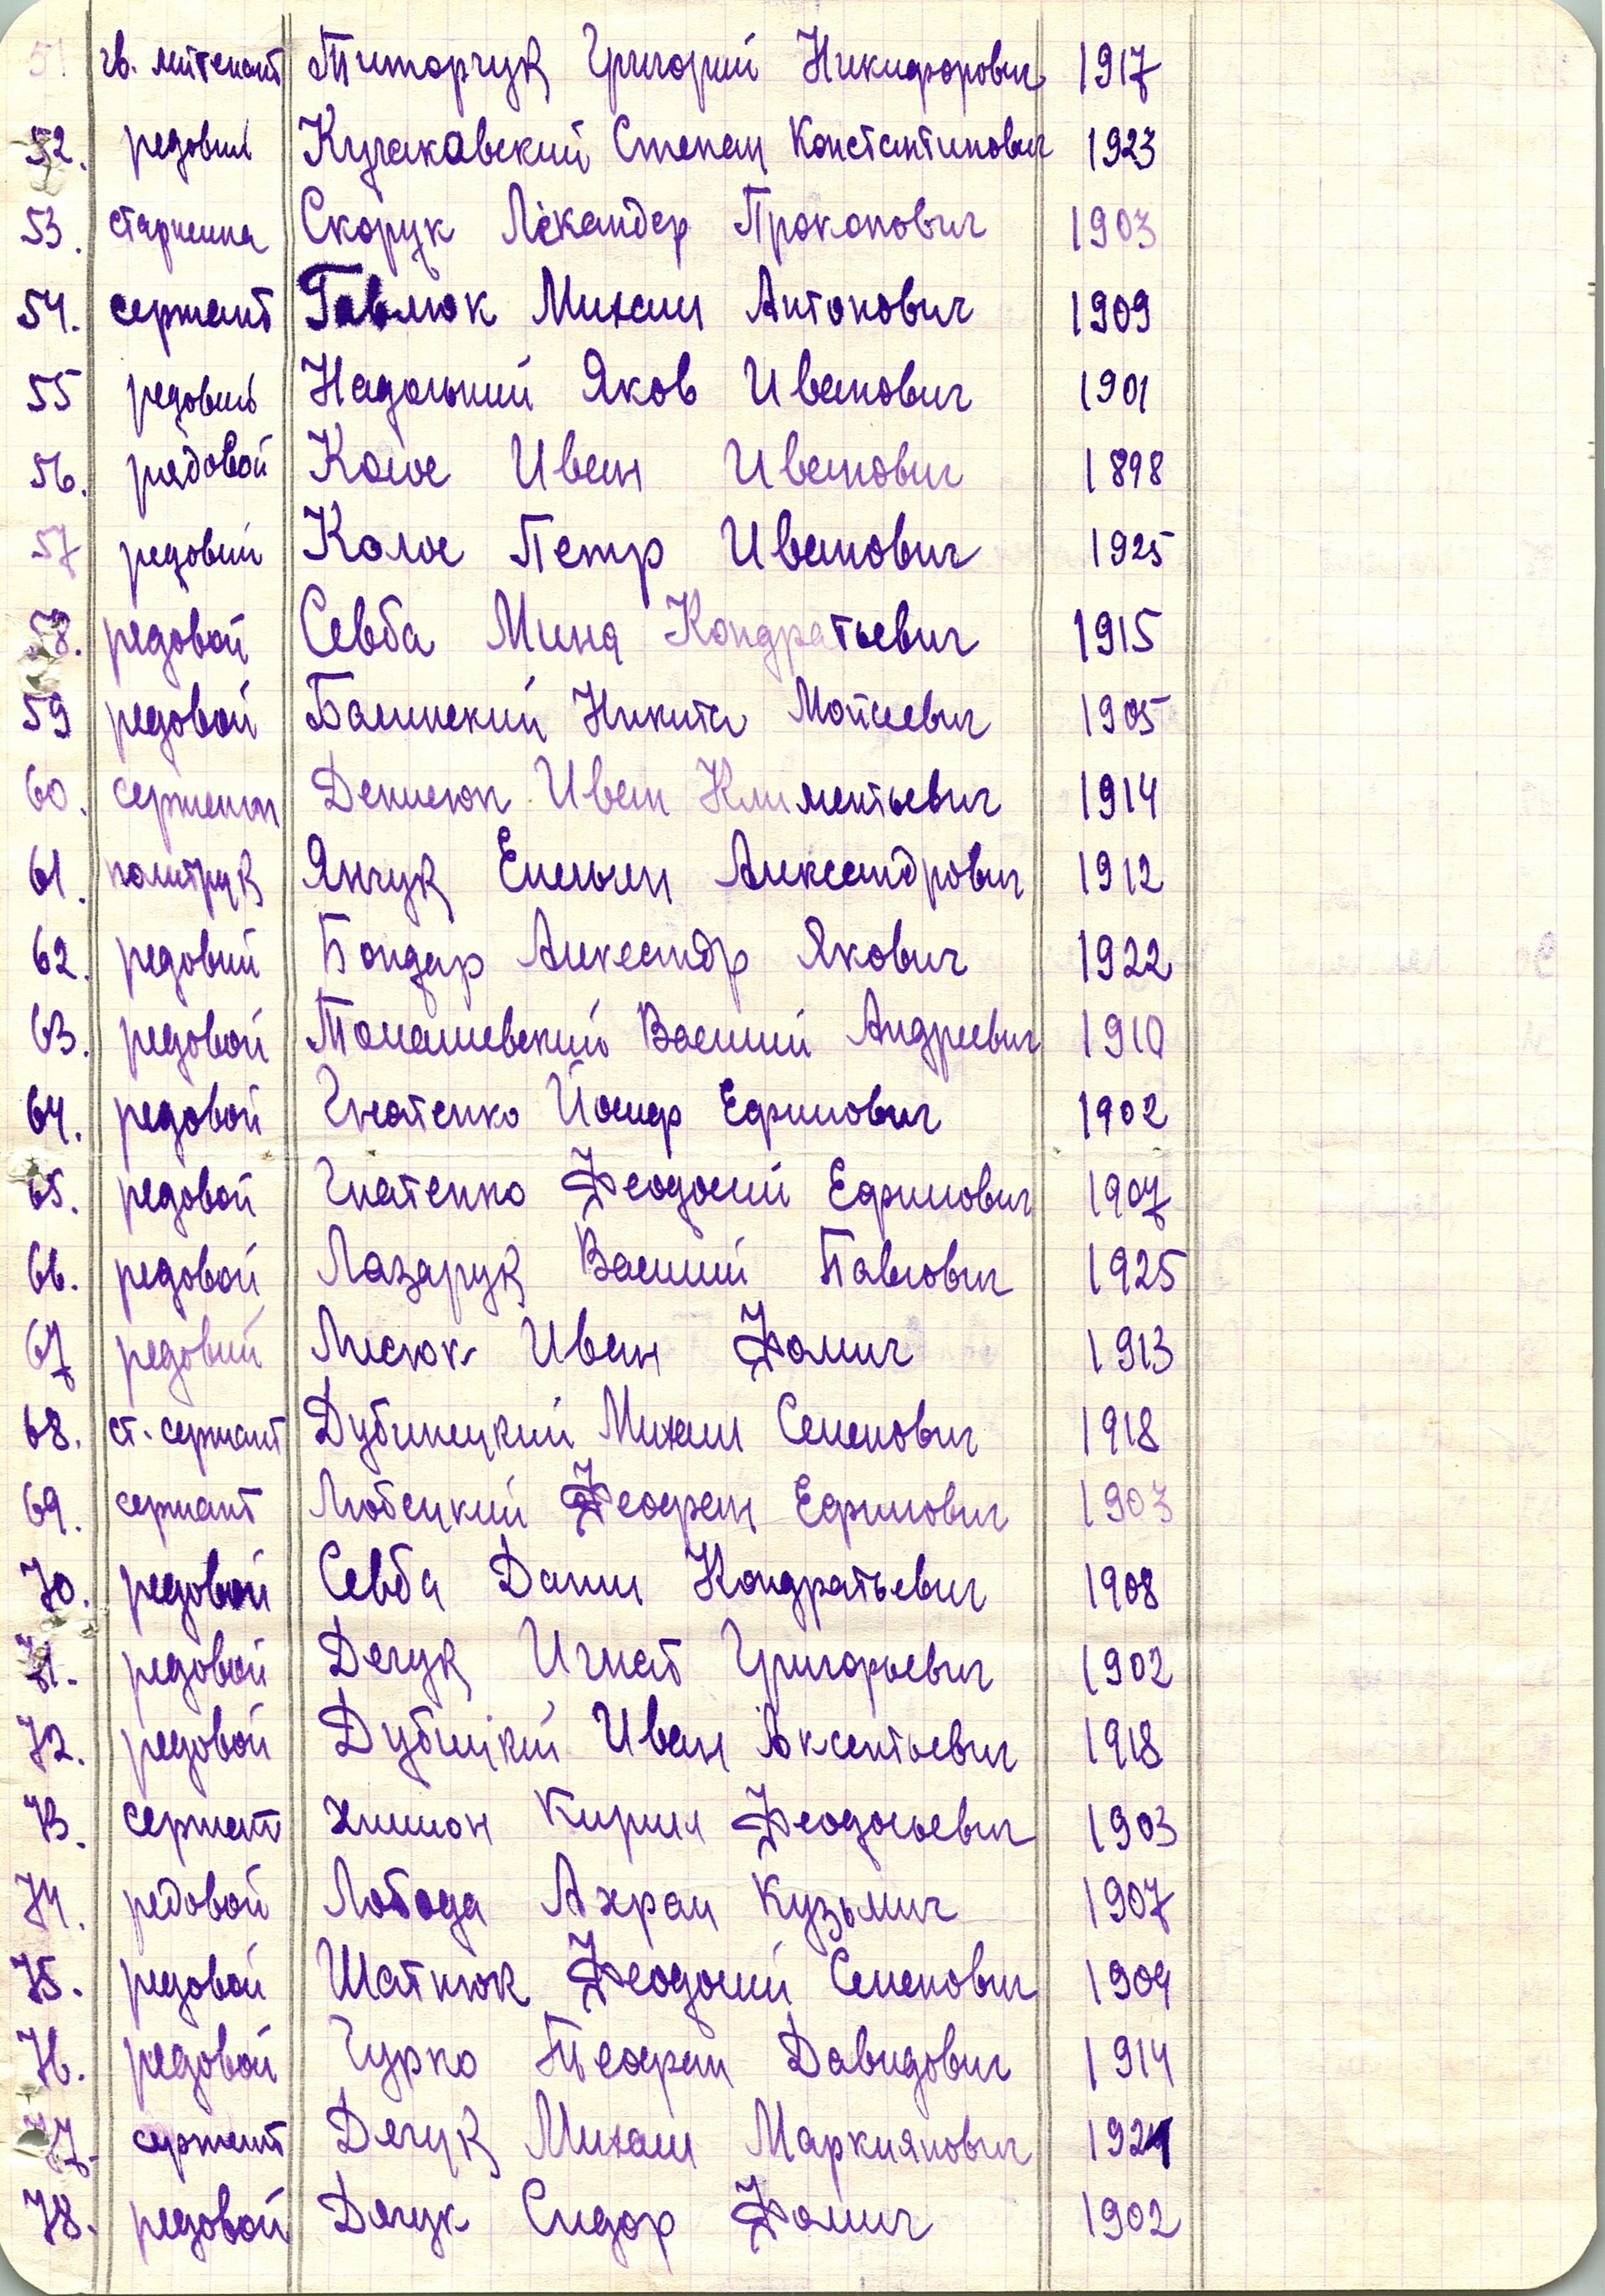 51. гв. литенант Титорчук Григорий Никифорович 1917
52. редовий Кучаковский Степан Константинович 1923
53. старшина Скорук Лікандер Прокопович 1903
54. сержант Гавлюк Михаил Антонович 1909
55 редовий Надольний Яков Иванович 1901
56. рядовой Колос Иван Иванович 1898
57 редовий Колос Петр Иванович 1925
58. редовой Севба Мина Кондратьевич 1915
59 редовой Балинский Никита Мойсеевич 1905
60. сержант Денисюк Иван Климентьевич 1914
61. политрук Янчук Емельян Александрович 1912
62. редовий Бондар Александр Якович 1922
63. редовой Томашевский Василий Андреевич 1910
64. редовой Гнатенко Йосиф Ефимович 1902
65. редовой Гнатенко Феодосий Ефимович 1907
66. редовой Лазарук Василий Павлович 1925
67 редовий Лисюк Иван Фомич 1913
68. ст. сержант Дубинецкий Михаил Семенович 1918
69. сержант Любецкий Феофан Ефимович 1903
70. редовой Севба Данил Кондратьевич 1908
71. редовой Дячук Игнат Григорьевич 1902
72. редовой Дубицкий Иван Аксентьевич 1918
73. сержант Кирил Феодосьевич 1903
74. редовой Лобода Ахрам Кузьмич 1907
75. редовой Шатнюк Феодосий Семенович 1909
76. редовой Гурко Теофан Давидович 1914
77. сержант Дячук Михаил Маркиянович 1924
78. редовой Дячук Сидор Фомич 1902